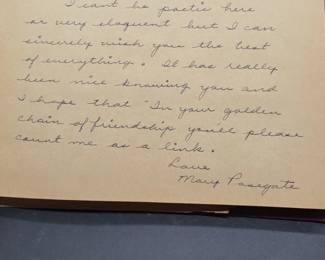 I can't be poetic here
or very eloquent but I can
sincerely wish you the best
of everything. It has really
been nice knowing you and
I hope that "In your golden
chain of friendship you'll please
count me as a link.
Love
Mary Posegate